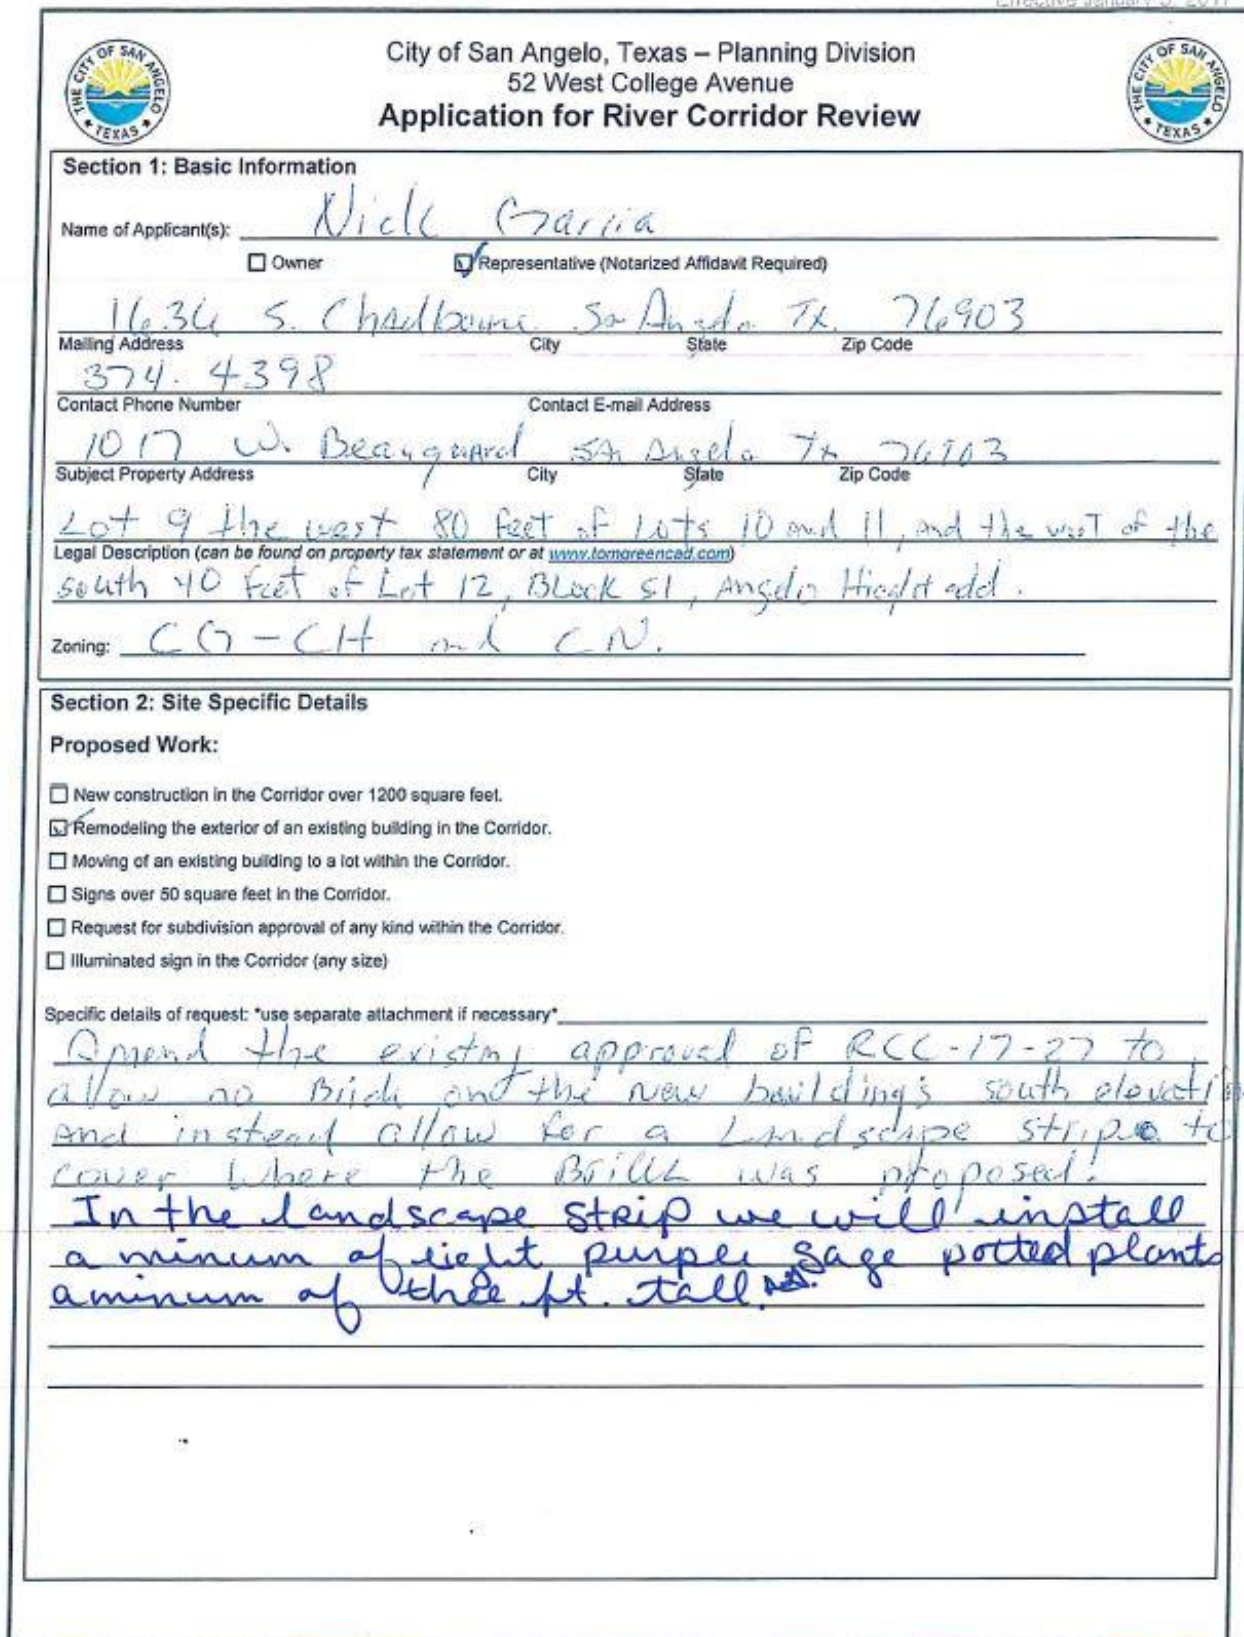 Effective January 3, 2017
THE CITY OF SAN ANGELO
TEXAS
City of San Angelo, Texas – Planning Division
52 West College Avenue
Application for River Corridor Review
THE CITY OF SAN ANGELO
TEXAS
Section 1: Basic Information
Name of Applicant(s): Nick Garcia
Owner Representative (Notarized Affidavit Required)
1636 S. Chadbourne San Angelo TX. 76903
Mailing Address City State Zip Code
374. 4398
Contact Phone Number Contact E-mail Address
1017 W. Beauguard San Angelo Tx 76903
Subject Property Address City State Zip Code
Lot 9 the west 80 feet of lots 10 and 11, and the west of the
Legal Description (can be found on property tax statement or at www.tomgreencad.com)
south 40 feet of Lot 12, Block 51, Angelo Hieght add.
Zoning: CG-CH and CN.
Section 2: Site Specific Details
Proposed Work:
New construction in the Corridor over 1200 square feet.
Remodeling the exterior of an existing building in the Corridor.
Moving of an existing building to a lot within the Corridor.
Signs over 50 square feet in the Corridor.
Request for subdivision approval of any kind within the Corridor.
Illuminated sign in the Corridor (any size)
Specific details of request: *use separate attachment if necessary*
Amend the existing approval of RCC-17-27 to
allow no Brick on the new building's south elevati
and instead allow for a Landscape strip to
cover where the Brick was proposed.
In the landscape strip we will install
a minum of eight purple sage potted plants
a minum of three ft. tall